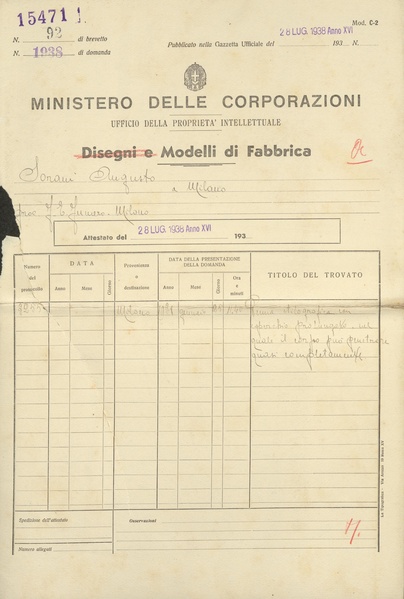 15471
N. 92 di brevetto
N. 1938 di domanda
Mod. C-2
Pubblicato nella Gazzetta Ufficiale del 28 LUG. 1938 Anno XVI 193 N.
MINISTERO DELLE CORPORAZIONI
UFFICIO DELLA PROPRIETA' INTELLETTUALE
Disegni e Modelli di Fabbrica
Sorani Augusto
a Milano
Milano
Attestato del 28 LUG. 1938 Anno XVI 193
Numero del protocollo
DATA
Anno Mese Giorno
Provenienza e destinazione
DATA DELLA PRESENTAZIONE DELLA DOMANDA
Anno Mese Giorno
Ora e minuti
TITOLO DEL TROVATO
Milano
Penna stilografica con
cappuccio prolungato nel
quale il corpo può penetrare
quasi completamente
Spedizione dell'attestato
Numero allegati
Osservazioni